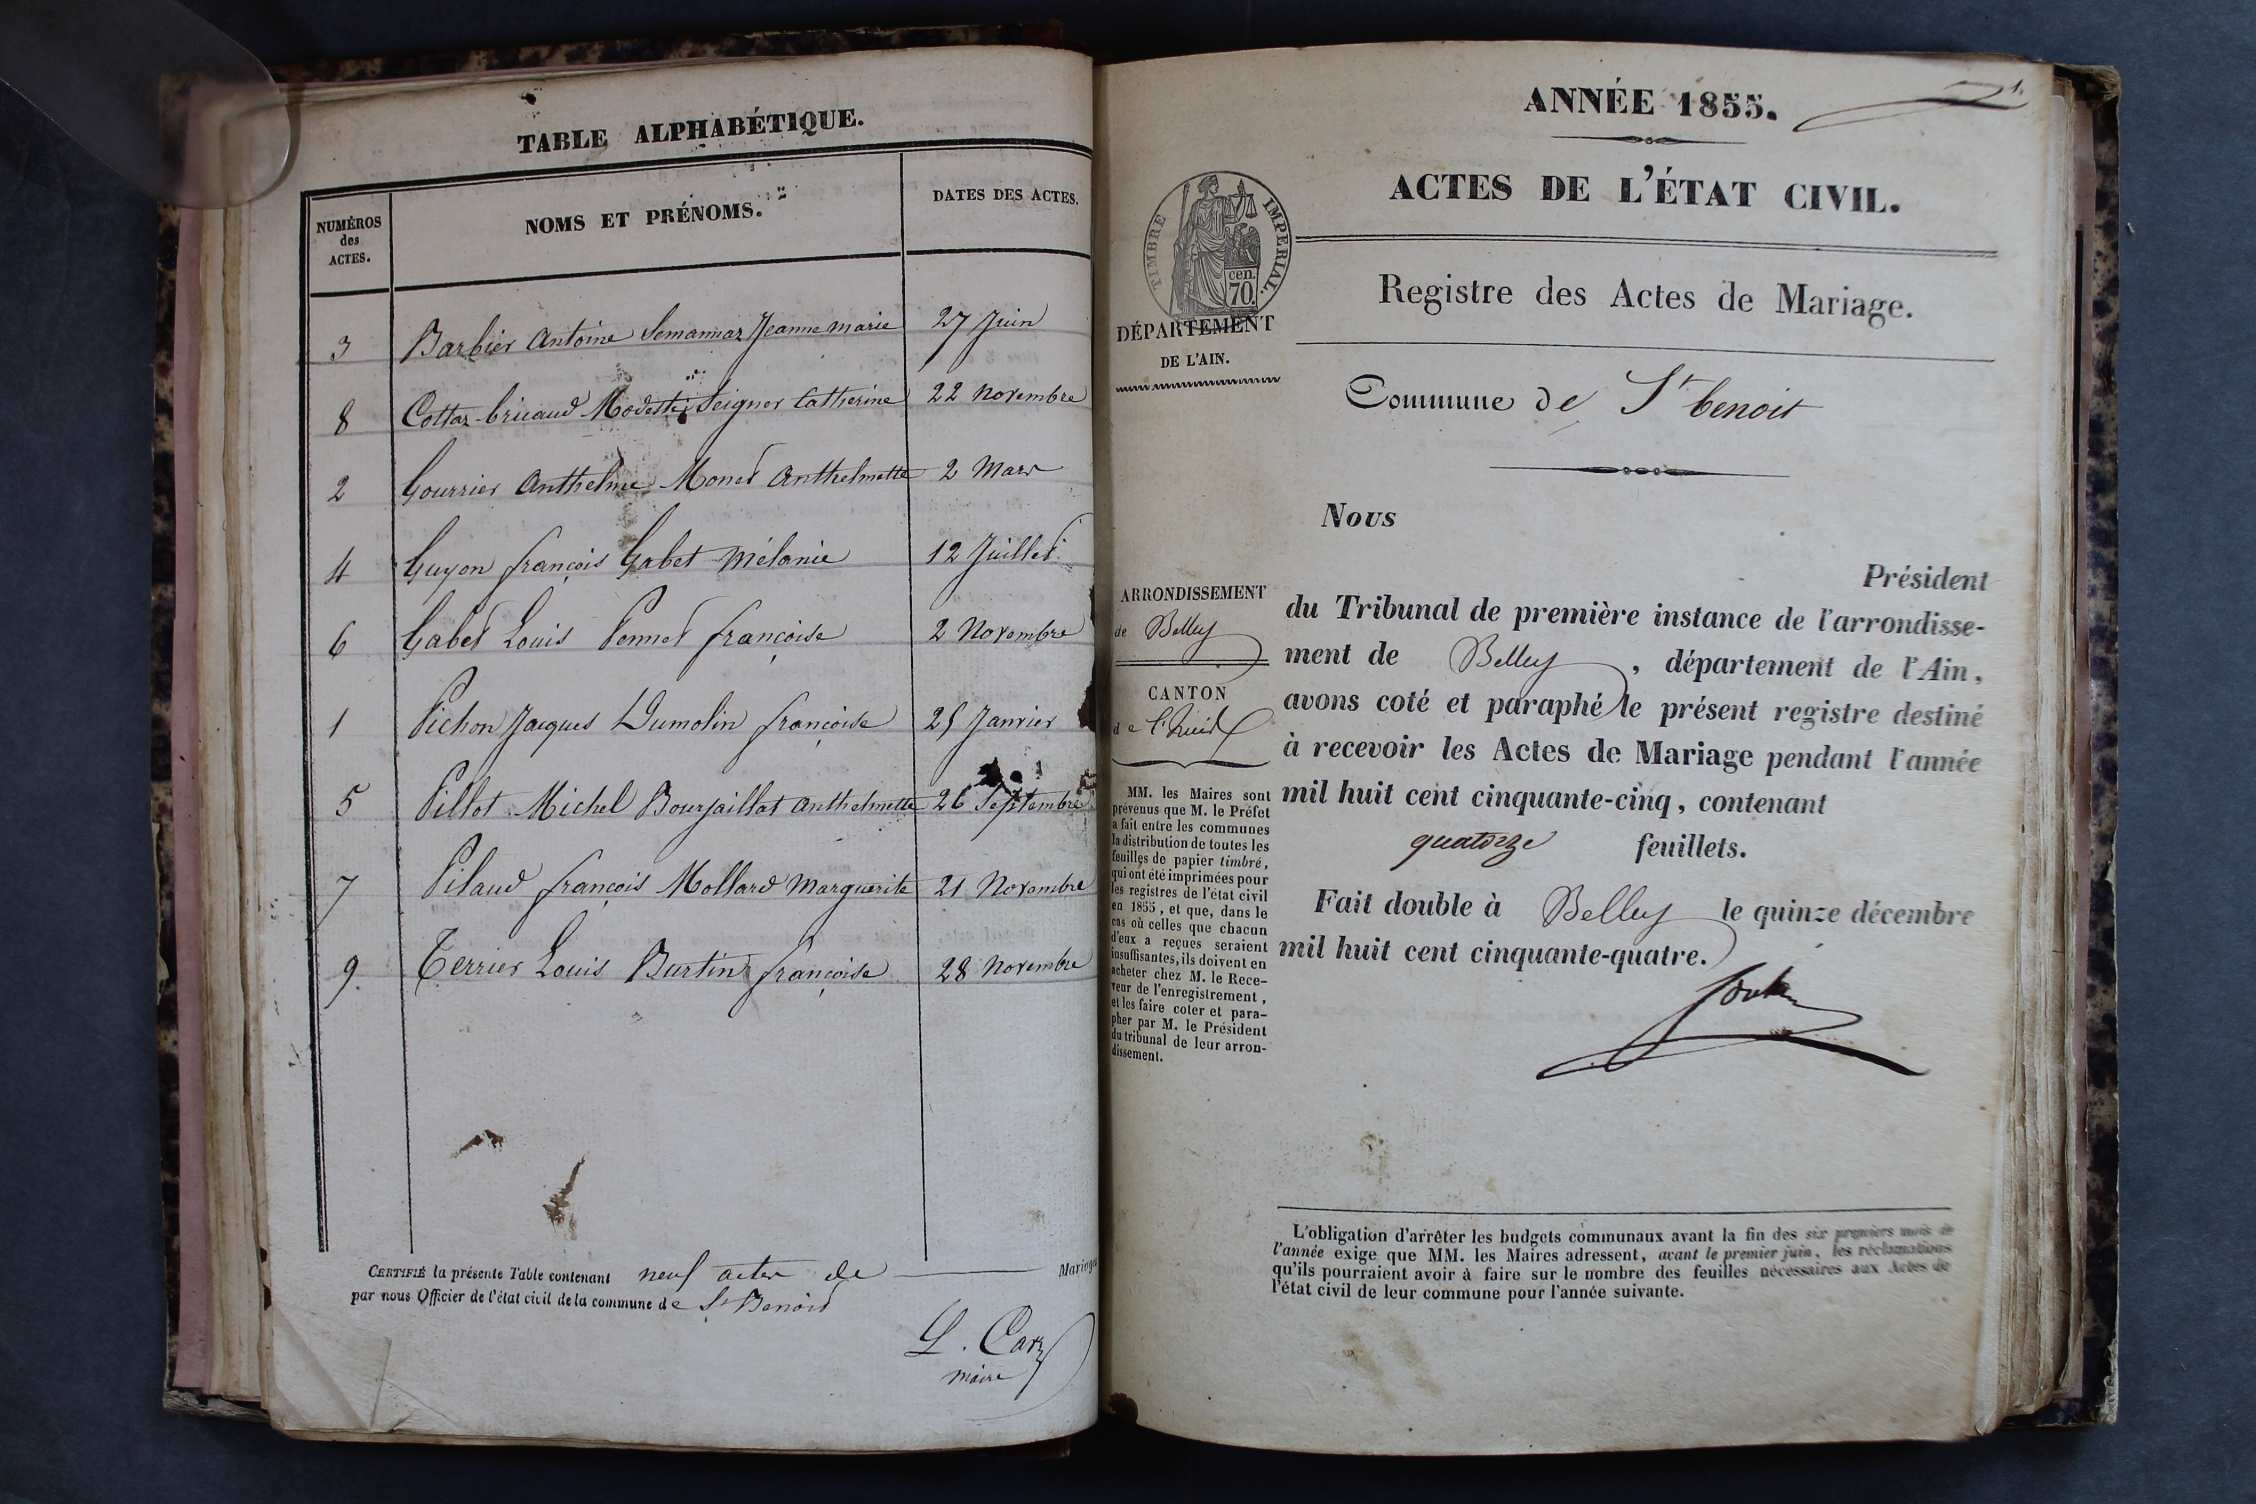 TABLE ALPHABÉTIQUE.
NUMÉROS
des
ACTES.
NOMS ET PRÉNOMS.
DATES DES ACTES.
3 Barbier Antoine Semanaz Jeanne marie 27 Juin
8 Cottaz-bricaud Modeste Seignor Catherine 22 novembre
2 Gourrier Anthelme Monet Anthelmette 2 Mars
4 Guyon françois Gabet Mélanie 12 Juillet
6 Gabet Louis Ponnet françoise 2 Novembre
1 Pichon Jacques Dumolin françoise 25 Janvier
5 Pillot Michel Bourjaillat Anthelmette 26 Septembre
7 Pilaud françois Mollard Marguerite 21 Novembre
9. Terrier Louis Burtin françoise 28 Novembre
CERTIFIÉ la présente Table contenant neuf actes de Mariage
par nous Officier de l'état civil de la commune de St Benoit
L. Caz
maire
1.
ANNÉE 1855.
ACTES DE L'ÉTAT CIVIL.
TIMBRE IMPÉRIAL.
cen.
70.
Registre des Actes de Mariage.
DÉPARTEMENT
DE L'AIN.
Commune de St benoit
Nous
Président
du Tribunal de première instance de l'arrondisse-
ment de Belley, département de l'Ain,
avons coté et paraphé le présent registre destiné
à recevoir les Actes de Mariage pendant l'année
mil huit cent cinquante-cinq, contenant
quatorze feuillets.
Fait double à Belley le quinze décembre
mil huit cent cinquante-quatre.
ARRONDISSEMENT
de Belley
CANTON
de l'huis
MM. les Maires sont
prévenus que M. le Préfet
a fait entre les communes
la distribution de toutes les
feuilles de papier timbré,
qui ont été imprimées pour
les registres de l'état civil
en 1855, et que, dans le
cas où celles que chacun
d'eux a reçues seraient
insuffisantes, ils doivent en
acheter chez M. le Rece-
veur de l'enregistrement,
et les faire coter et para-
pher par M. le Président
du tribunal de leur arron-
dissement.
L'obligation d'arrêter les budgets communaux avant la fin des six premiers mois de
l'année exige que MM. les Maires adressent, avant le premier juin, les réclamations
qu'ils pourraient avoir à faire sur le nombre des feuilles nécessaires aux Actes de
l'état civil de leur commune pour l'année suivante.